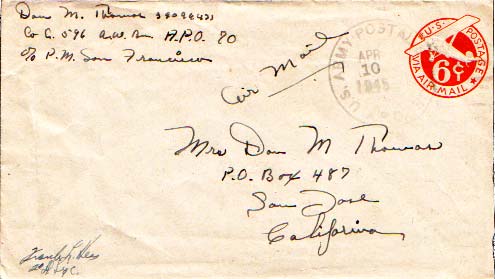 Dan M. Thomas 39098421
Co C. 596 A.W. Bn. A.P.O. 70
c/o P.M. San Francisco
Air Mail
U.S. ARMY POSTAL
APR
10
1945
U.S. POSTAGE
6¢
VIA AIR MAIL
Mrs Dan M Thomas
P.O. Box 487
San Jose
California